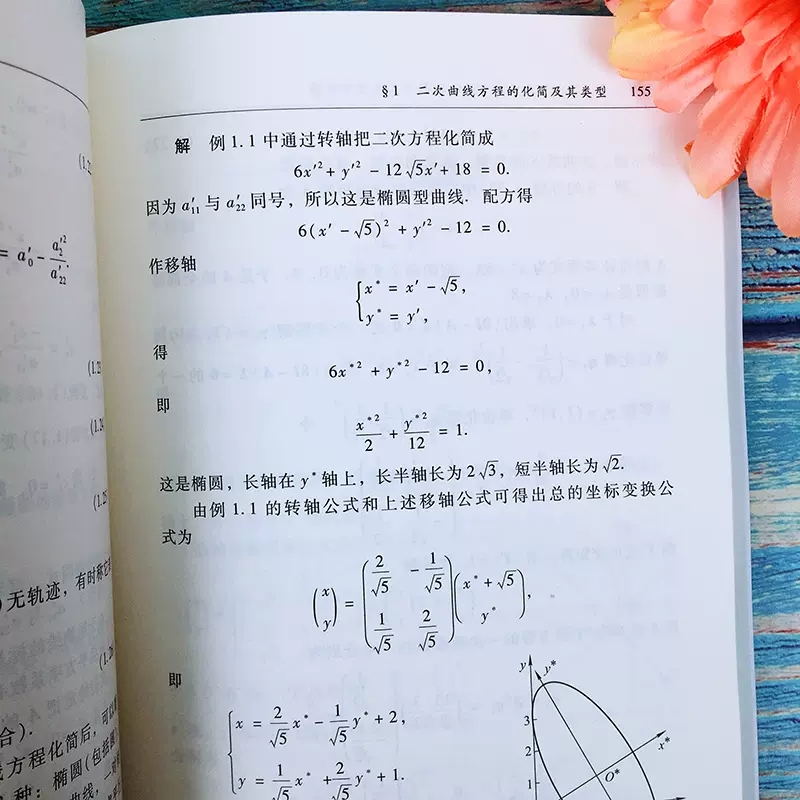 §1 二次曲线方程的化简及其类型 155
解 例 1.1 中通过转轴把二次方程化简成
6x′² + y′² − 12√5x′ + 18 = 0.
因为 a′₁₁ 与 a′₂₂ 同号，所以这是椭圆型曲线. 配方得
6(x′ − √5)² + y′² − 12 = 0.
作移轴
{ x* = x′ − √5,
y* = y′,
得
6x*² + y*² − 12 = 0,
即
x*²/2 + y*²/12 = 1.
这是椭圆，长轴在 y* 轴上，长半轴长为 2√3，短半轴长为√2.
由例 1.1 的转轴公式和上述移轴公式可得出总的坐标变换公
式为
(x y) = (2/√5 −1/√5 1/√5 2/√5)(x* + √5 y*),
即
{ x = 2/√5 x* − 1/√5 y* + 2,
y = 1/√5 x* + 2/√5 y* + 1.
y
y*
3
2
1
x*
O*
= a′₀ − a′₂²/a′₂₂.
(1.2
(1.24
(1.25
无轨迹，有时称它
(1.26
合).
方程化简后，可以
种：椭圆(包括